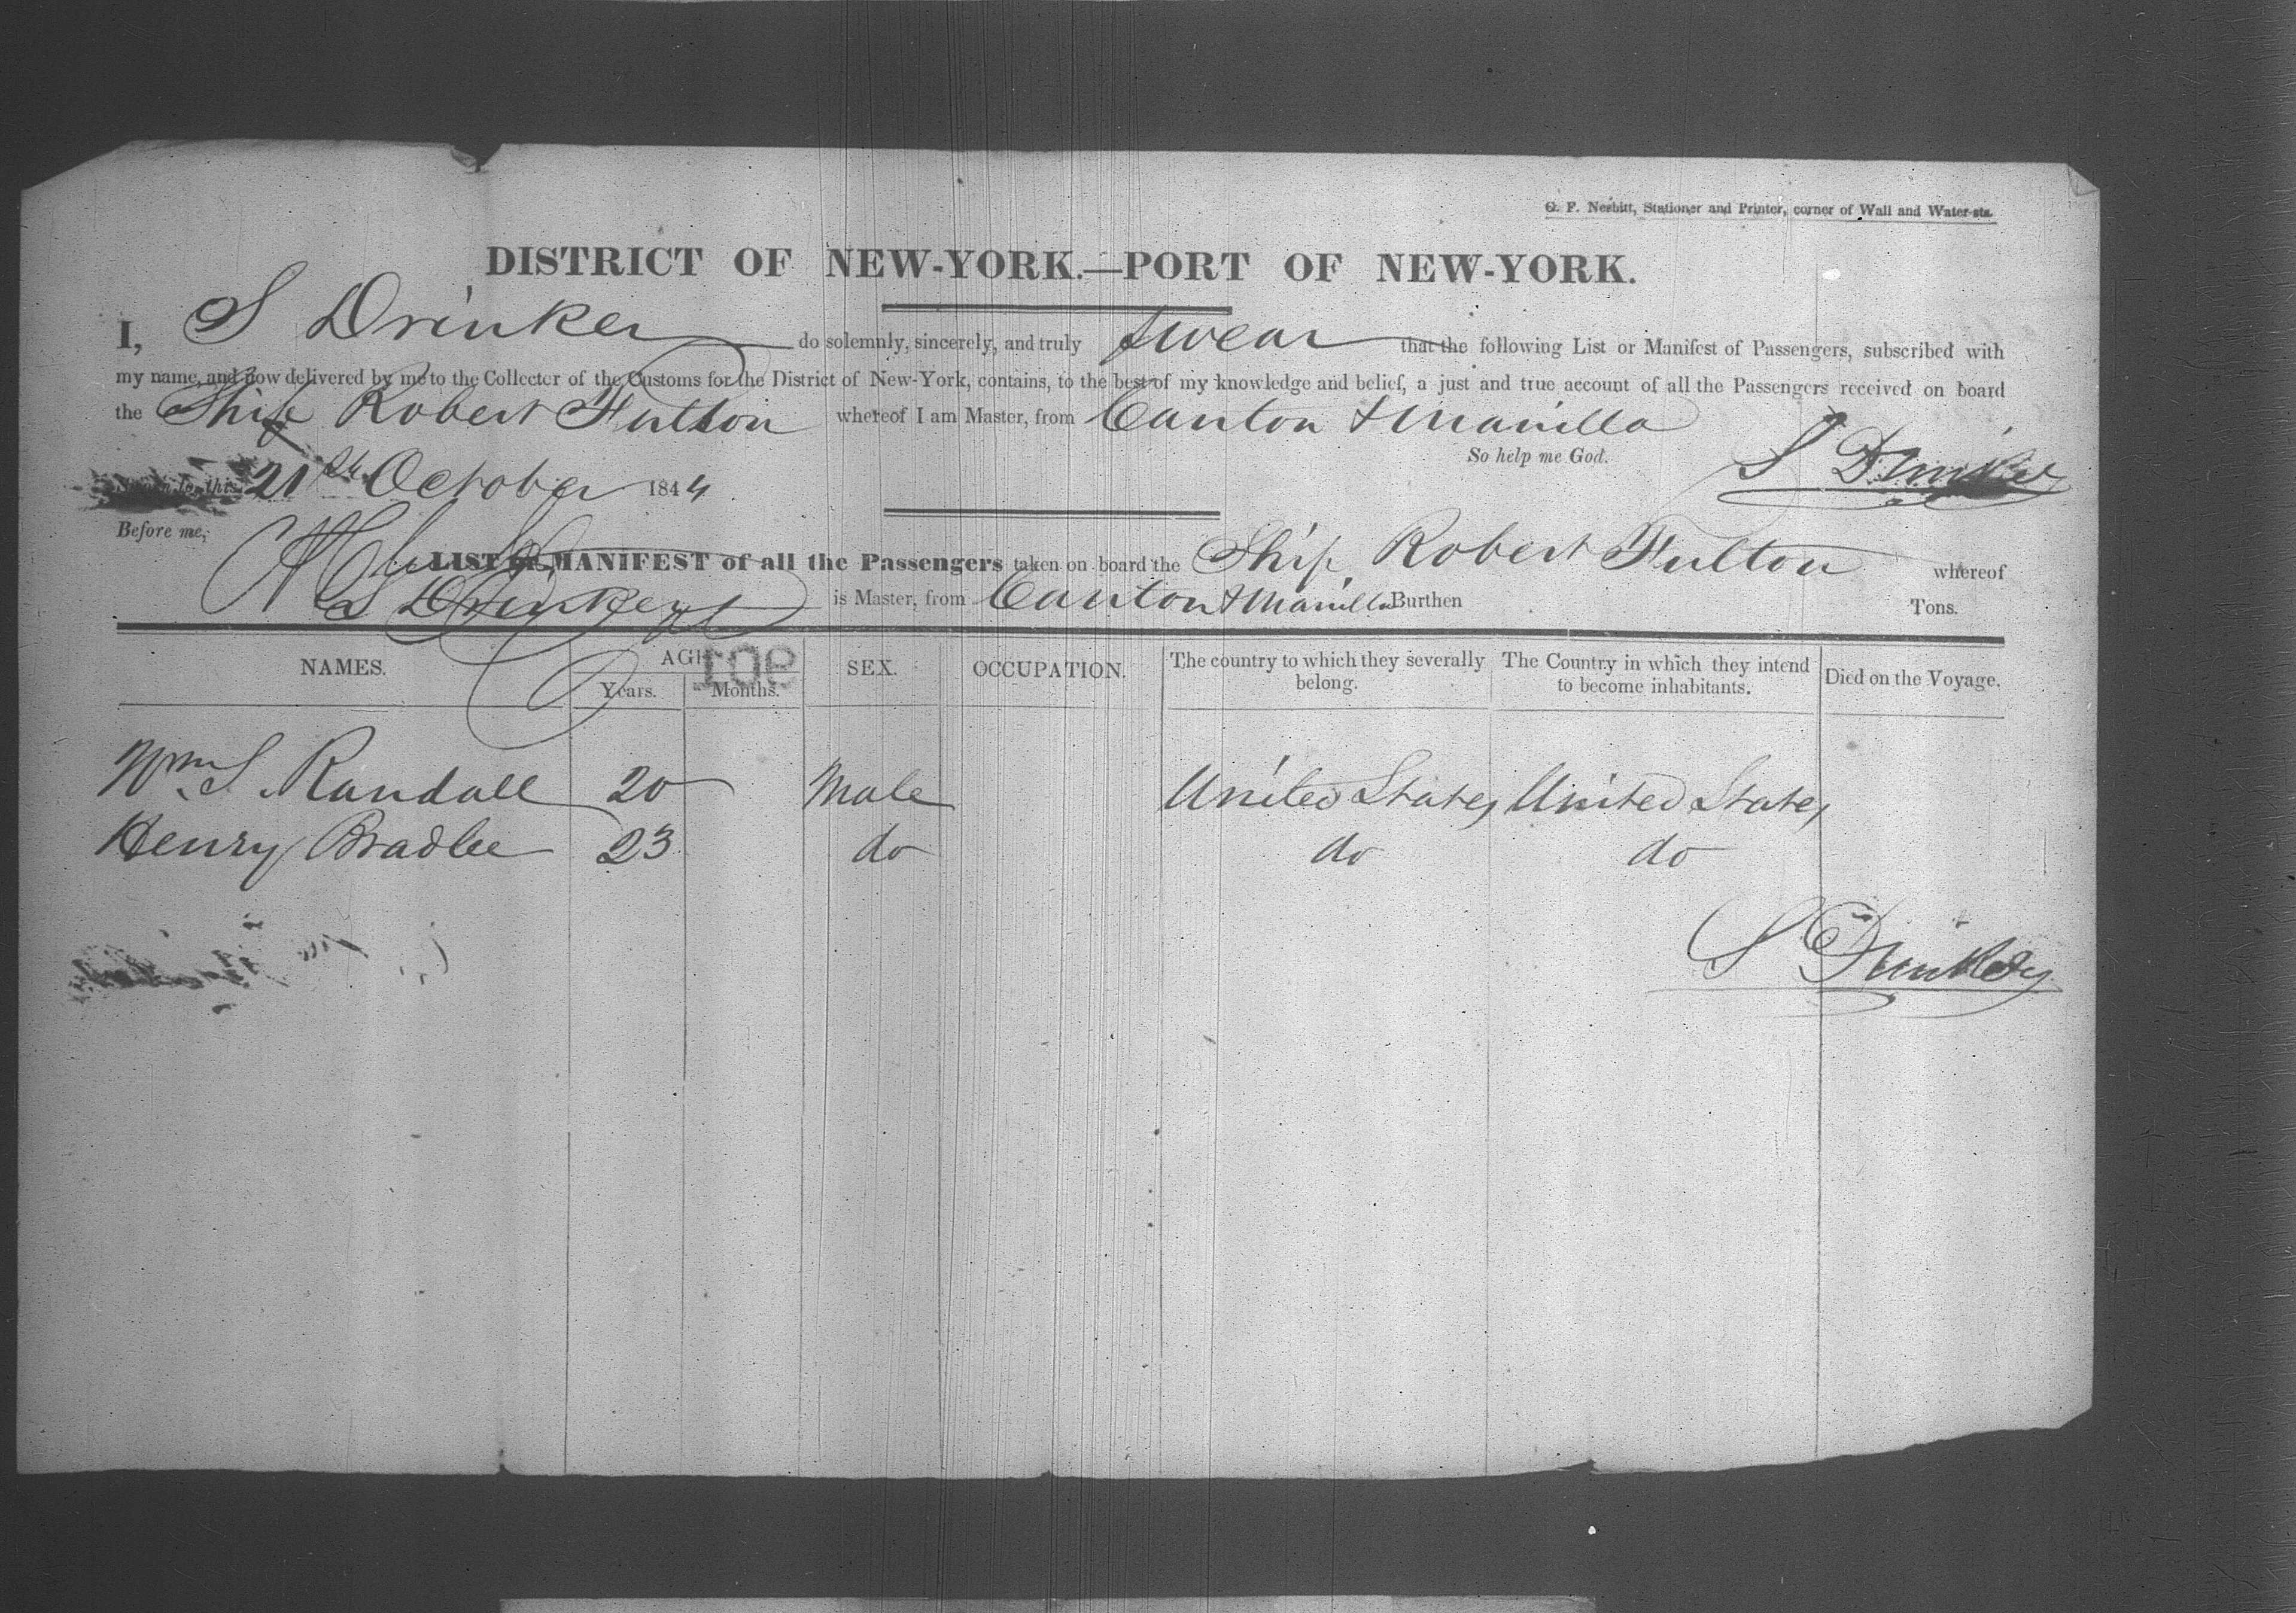 G. F. Nesbitt, Stationer and Printer, corner of Wall and Water-sts.
DISTRICT OF NEW-YORK.—PORT OF NEW-YORK.
I, S Drinker do solemnly, sincerely, and truly swear that the following List or Manifest of Passengers, subscribed with
my name, and now delivered by me to the Collector of the Customs for the District of New-York, contains, to the best of my knowledge and belief, a just and true account of all the Passengers received on board
the Ship Robert Fulton whereof I am Master, from Canton & Manilla
So help me God.
Sworn to this 21st October 1844 S Drinker
Before me,
LIST or MANIFEST of all the Passengers taken on board the Ship Robert Fulton whereof
S Drinker is Master, from Canton & Manilla Burthen Tons.
NAMES. AGE 901 SEX. OCCUPATION. The country to which they severally belong. The Country in which they intend to become inhabitants. Died on the Voyage.
Years. Months.
Wm. S. Randall 20 Male United States United States
Henry Bradlee 23 do do do
S Drinker